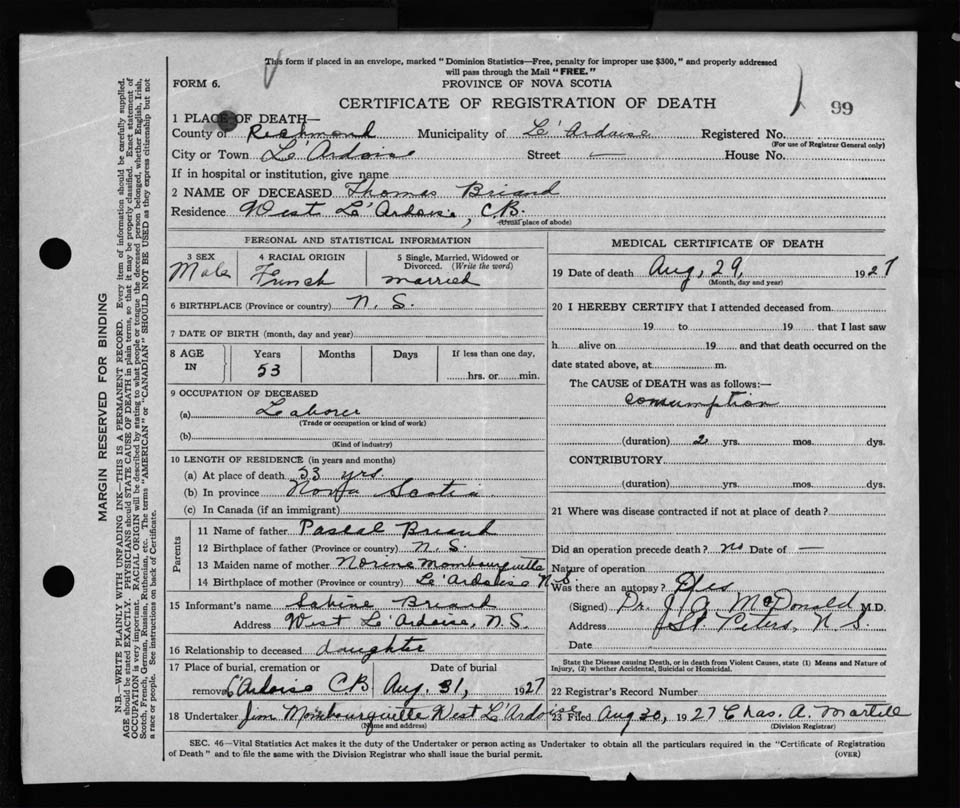 This form if placed in an envelope, marked "Dominion Statistics—Free, penalty for improper use $300," and properly addressed
will pass through the Mail "FREE."
FORM 6.
PROVINCE OF NOVA SCOTIA
CERTIFICATE OF REGISTRATION OF DEATH
99
1 PLACE OF DEATH—
County of Richmond Municipality of L'Ardoise Registered No.
(For use of Registrar General only)
City or Town L'Ardoise Street — House No.
If in hospital or institution, give name
2 NAME OF DECEASED Thomas Briand
Residence West L'Ardoise, C.B.
(Usual place of abode)
PERSONAL AND STATISTICAL INFORMATION
3 SEX 4 RACIAL ORIGIN 5 Single, Married, Widowed or
Divorced. (Write the word)
Male French Married
6 BIRTHPLACE (Province or country) N. S.
7 DATE OF BIRTH (month, day and year)
8 AGE IN Years Months Days If less than one day,
53 hrs. or min.
9 OCCUPATION OF DECEASED
(a) Laborer
(Trade or occupation or kind of work)
(b)
(Kind of industry)
10 LENGTH OF RESIDENCE (in years and months)
(a) At place of death 53 yrs.
(b) In province Nova Scotia
(c) In Canada (if an immigrant)
Parents
11 Name of father Pascal Briand
12 Birthplace of father (Province or country) N. S.
13 Maiden name of mother Norine Mombourquette
14 Birthplace of mother (Province or country) L'Ardoise N.S.
15 Informant's name Sabine Briand
Address West L'Ardoise, N.S.
16 Relationship to deceased daughter
17 Place of burial, cremation or Date of burial
removal L'Ardoise CB Aug. 31, 1927
18 Undertaker Jim Mombourquette West L'Ardoise
(Name and address)
MEDICAL CERTIFICATE OF DEATH
19 Date of death Aug, 29, 1927
(Month, day and year)
20 I HEREBY CERTIFY that I attended deceased from
19 to 19 that I last saw
h alive on 19 and that death occurred on the
date stated above, at m.
The CAUSE of DEATH was as follows:—
consumption
(duration) 2 yrs. mos. dys.
CONTRIBUTORY
(duration) yrs. mos. dys.
21 Where was disease contracted if not at place of death?
Did an operation precede death? no Date of —
Nature of operation
Was there an autopsy?
(Signed) Dr. J. A. McDonald M.D.
Address St. Peters, N. S.
Date
State the Disease causing Death, or in death from Violent Causes, state (1) Means and Nature of
Injury, (2) whether Accidental, Suicidal or Homicidal.
22 Registrar's Record Number
23 Filed Aug 30, 1927 Chas. A. Martell
(Division Registrar)
SEC. 46—Vital Statistics Act makes it the duty of the Undertaker or person acting as Undertaker to obtain all the particulars required in the "Certificate of Registration
of Death" and to file the same with the Division Registrar who shall issue the burial permit.
(OVER)
MARGIN RESERVED FOR BINDING
N.B.—WRITE PLAINLY WITH UNFADING INK—THIS IS A PERMANENT RECORD. Every item of information should be carefully supplied.
AGE should be stated EXACTLY. PHYSICIANS should STATE CAUSE OF DEATH in plain terms, so that it may be properly classified. Exact statement of
OCCUPATION is very important. RACIAL ORIGIN will be described by stating to what people or tongue the deceased person belonged, whether English, Irish,
Scotch, French, German, Russian, Ruthenian, etc. The terms "AMERICAN" or "CANADIAN" SHOULD NOT BE USED as they express citizenship but not
a race or people. See instructions on back of Certificate.